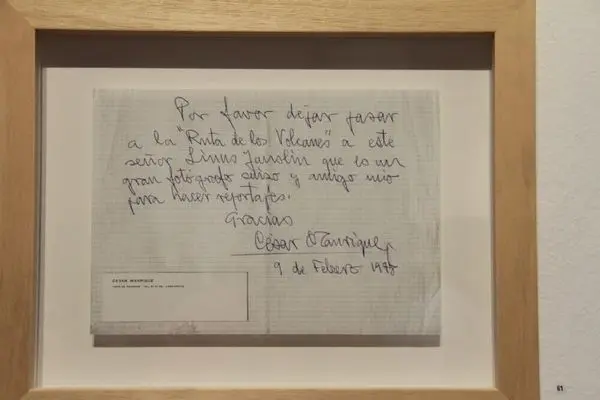 Por favor dejar pasar
a la "Ruta de los Volcanes" a este
señor Linus
que es un
gran fotógrafo suizo y amigo mio
para hacer reportajes.
Gracias
César Manrique
9 de Febero 1978
CESAR MANRIQUE
61